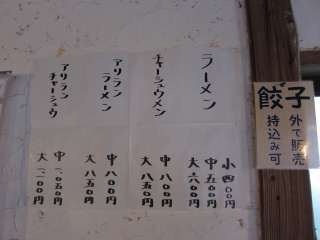 ラーメン
小 四〇〇円
中 五〇〇円
大 六〇〇円
チャーシュウメン
中 八〇〇円
大 八五〇円
アリラン
ラーメン
中 八〇〇円
大 八五〇円
アリラン
チャーシュウ
中 一、〇五〇円
大 一、一〇〇円
餃子
外で販売
持込み可